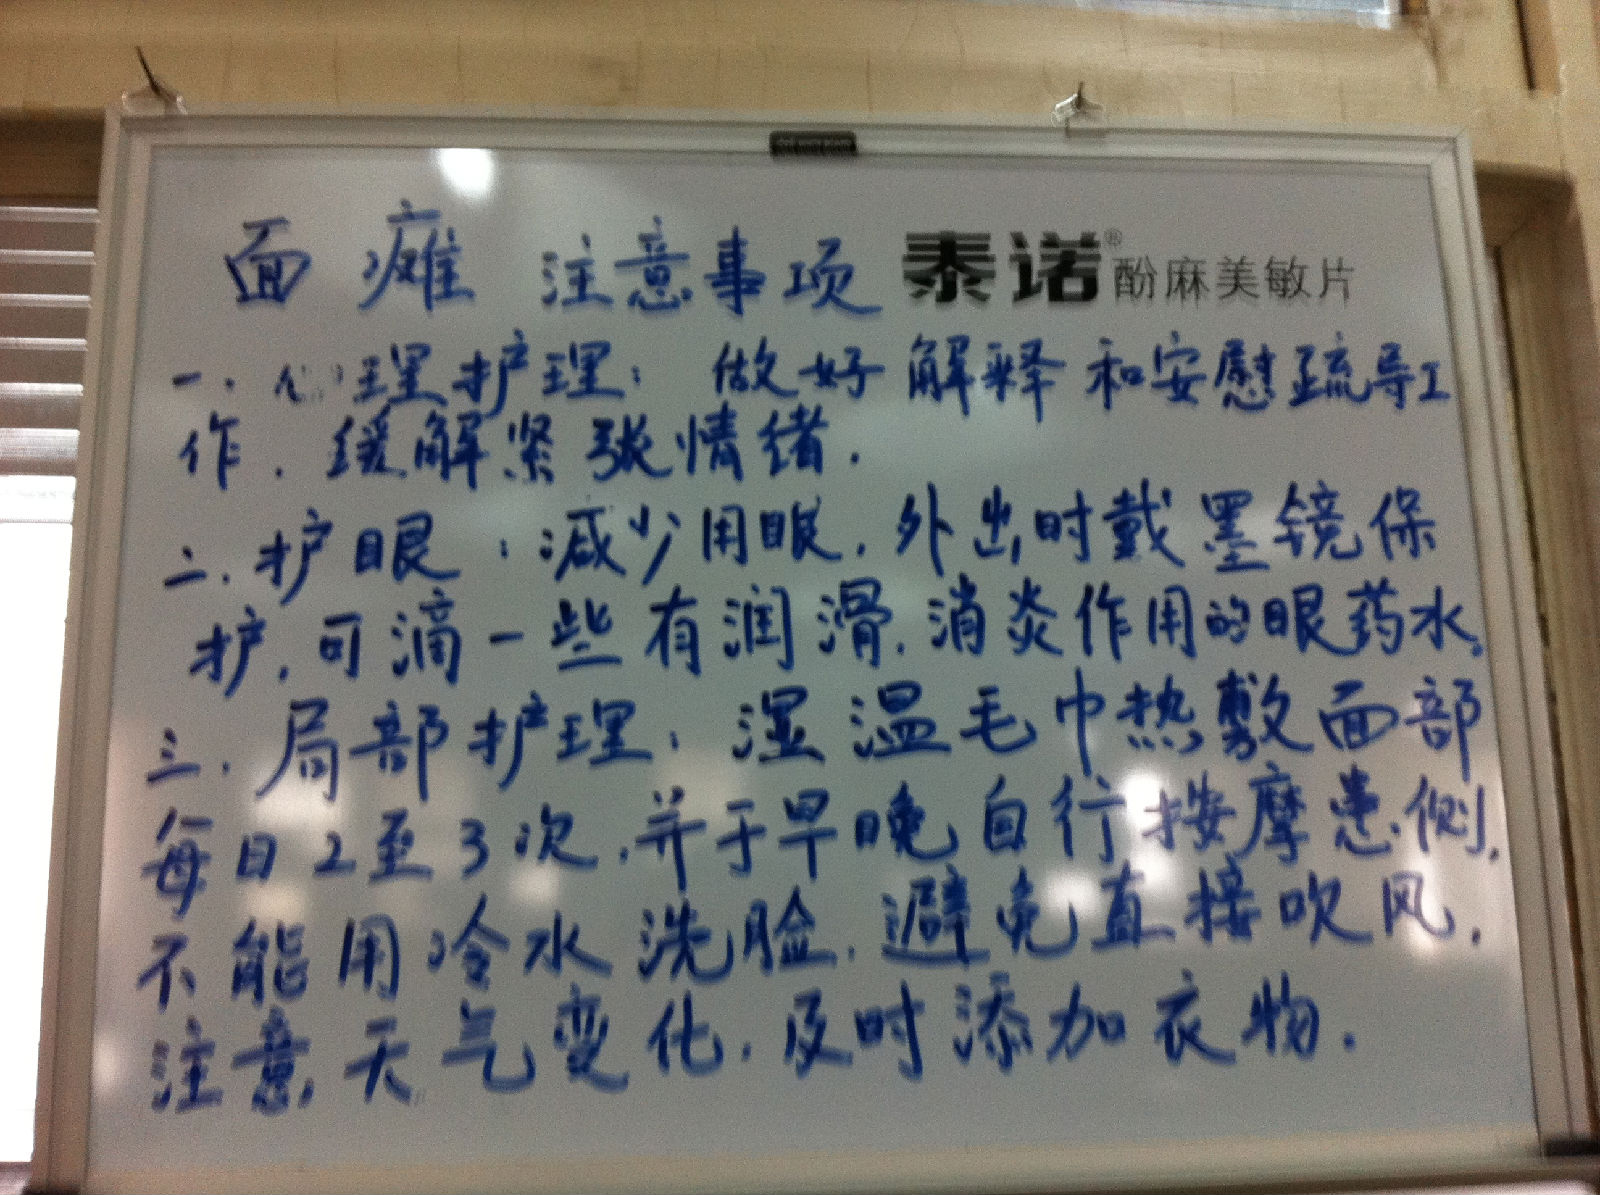 面瘫 注意事项 泰诺® 酚麻美敏片
一.心理护理:做好解释和安慰疏导工
作.缓解紧张情绪.
二.护眼:减少用眼,外出时戴墨镜保
护,可滴一些有润滑.消炎作用的眼药水。
三.局部护理:湿温毛巾热敷面部
每日2至3次,并于早晚自行按摩患侧,
不能用冷水洗脸.避免直接吹风.
注意天气变化,及时添加衣物.